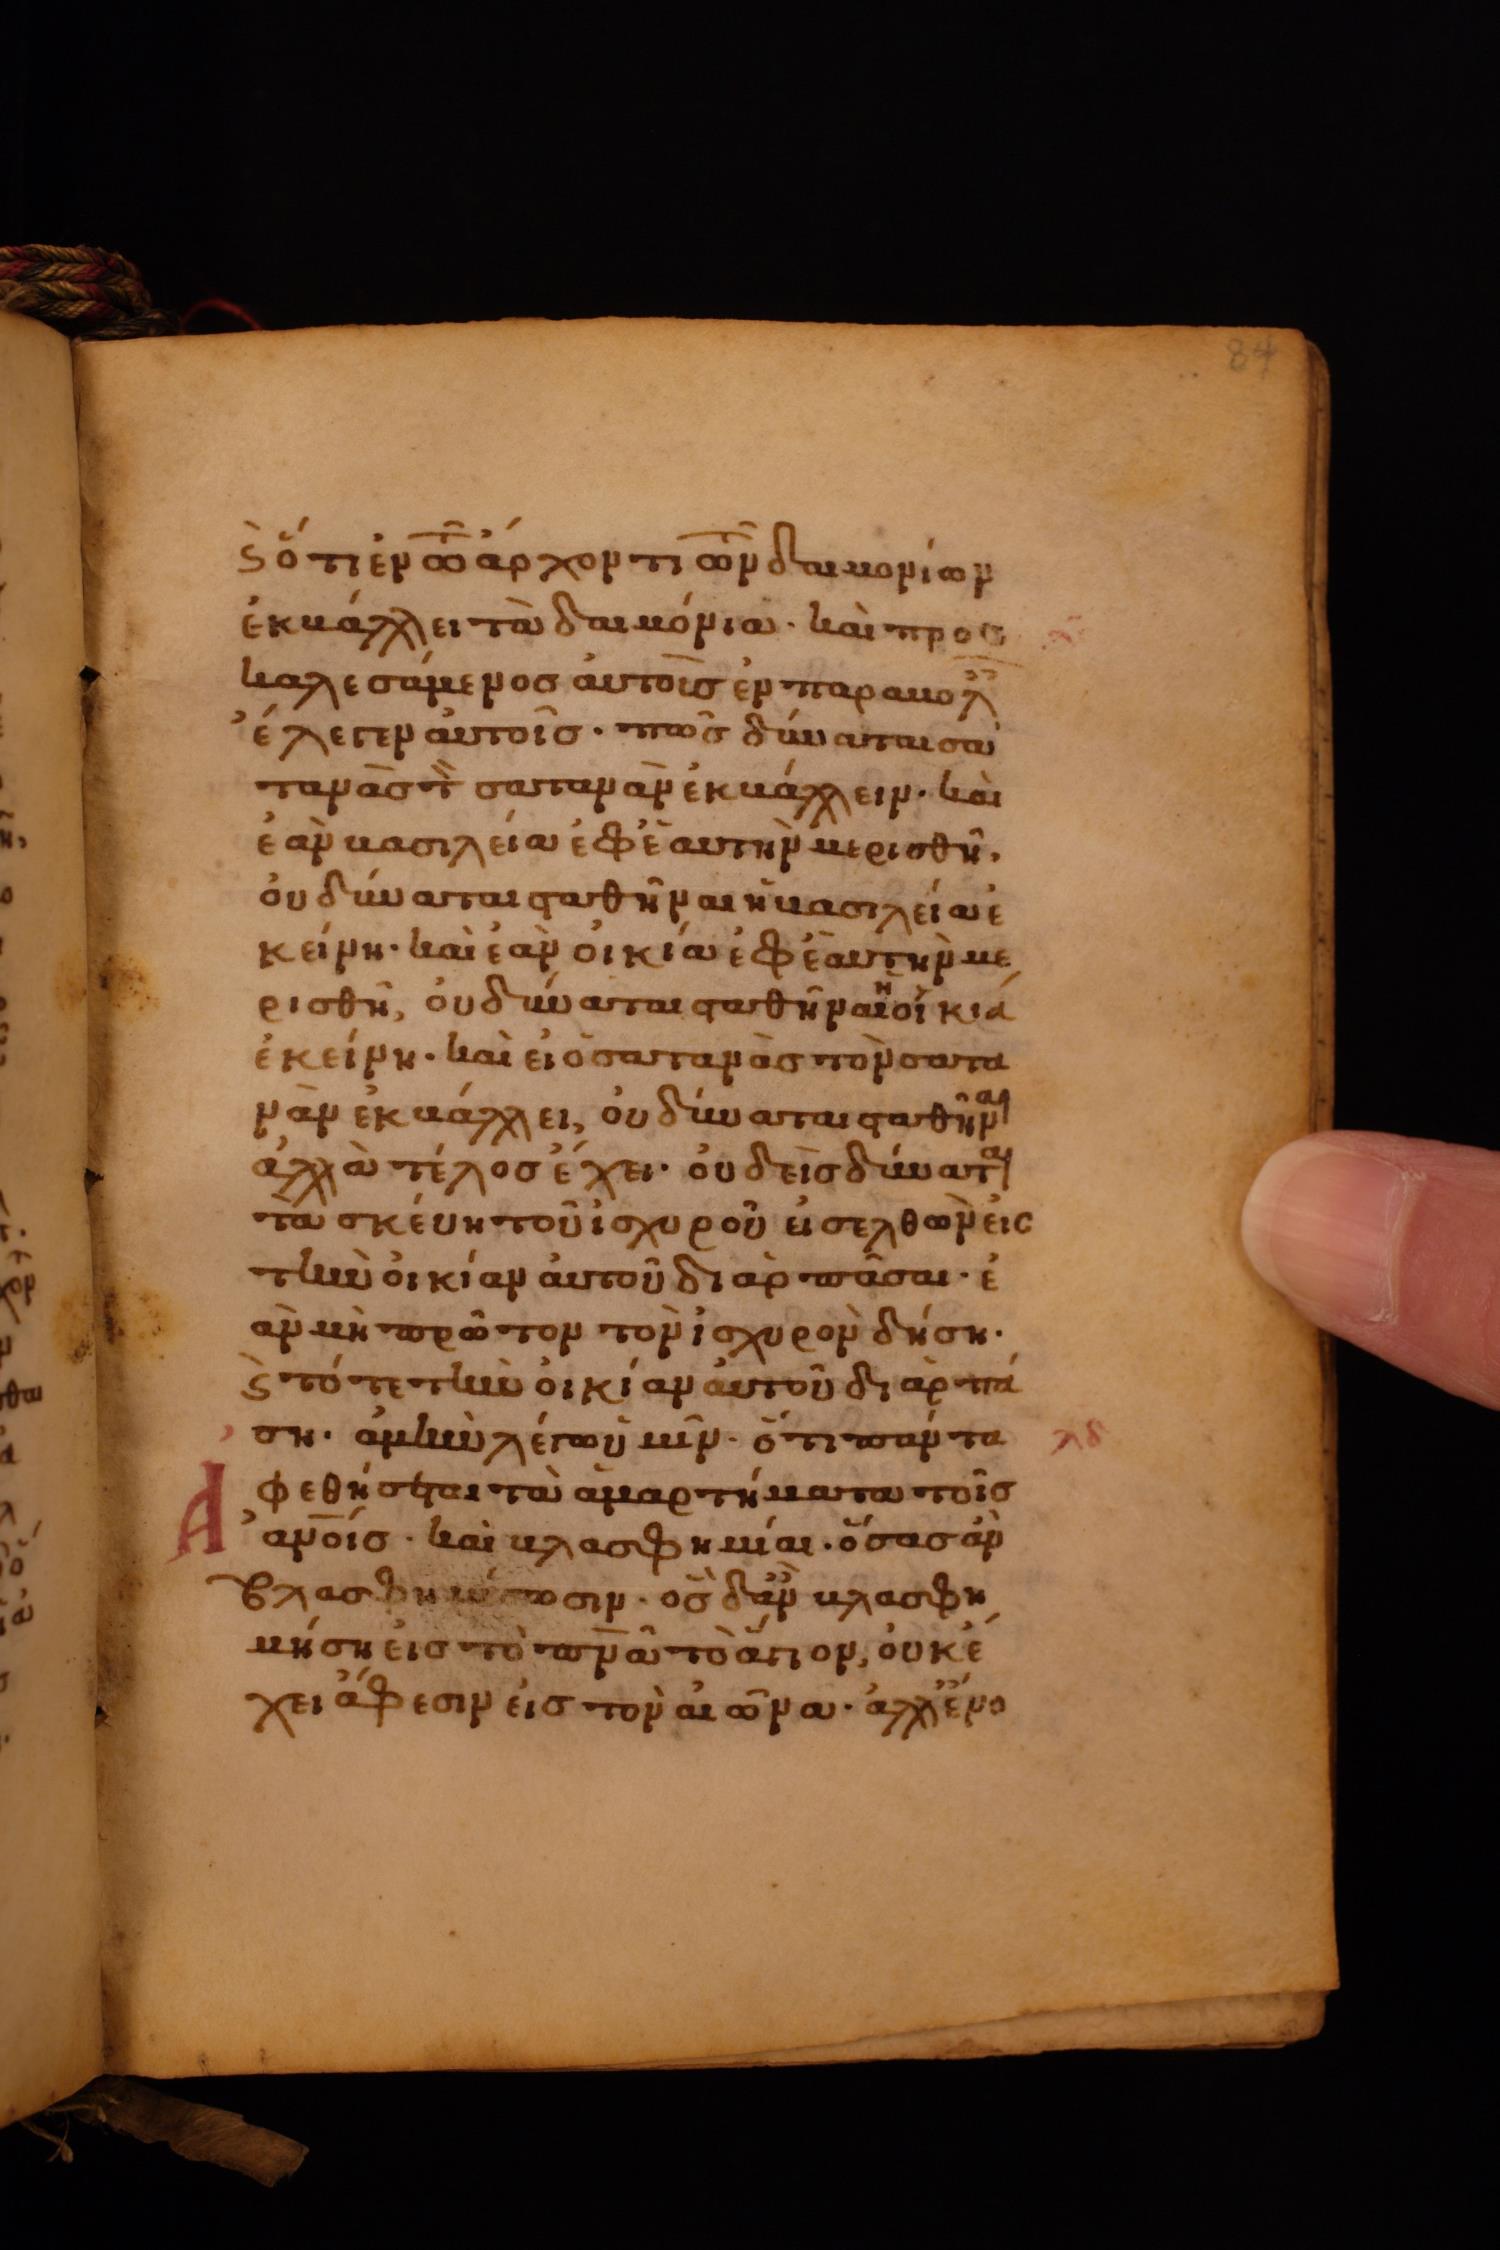 84
ϛ ὅτι ἐν τῶ ἄρχοντι τῶν δαιμονίων
ἐκβάλλει τὰ δαιμόνια· καὶ προσ
καλεσάμενος αὐτοὺς ἐν παραβολ
ἔλεγεν αὐτοῖς· πῶς δύναται σα
τανᾶς σατανᾶν ἐκβάλλειν· καὶ
ἐὰν βασιλεία ἐφ' ἑαυτὴν μερισθῆ,
οὐ δύναται σταθῆναι ἡ βασιλεία ἐ
κείνη· καὶ ἐὰν οἰκία ἐφ' ἑαυτὴν με
ρισθῆ, οὐ δύναται σταθῆναι ἡ οἰκία
ἐκείνη· καὶ εἰ ὁ σατανᾶς τὸν σατα
νὰν ἐκβάλλει, οὐ δύναται σταθῆναι
ἀλλὰ τέλος ἔχει· οὐδεὶς δύναται
τὰ σκέυη τοῦ ἰσχυροῦ εἰσελθὼν εἰς
τὴν οἰκίαν αὐτοῦ διαρπᾶσαι· ἐ
ὰν μὴ πρῶτον τὸν ἰσχυρὸν δήση·
ϛ τότε τὴν οἰκίαν αὐτοῦ διαρπά
ση· ἀμὴν λέγω ὑμῖν· ὅτι πάντα λδ
Ἀφεθήσεται τὰ ἁμαρτήματα τοῖς
ἀνοίς· καὶ βλασφημίαι· ὅσας ἂν
βλασφημήσωσιν· ὃς δ' ἂν βλασφη
μήση εἰς τὸ πνᾶ τὸ ἅγιον, οὐκ ἔ
χει ἄφεσιν εἰς τὸν αἰῶνα· ἀλλ' ἔνο